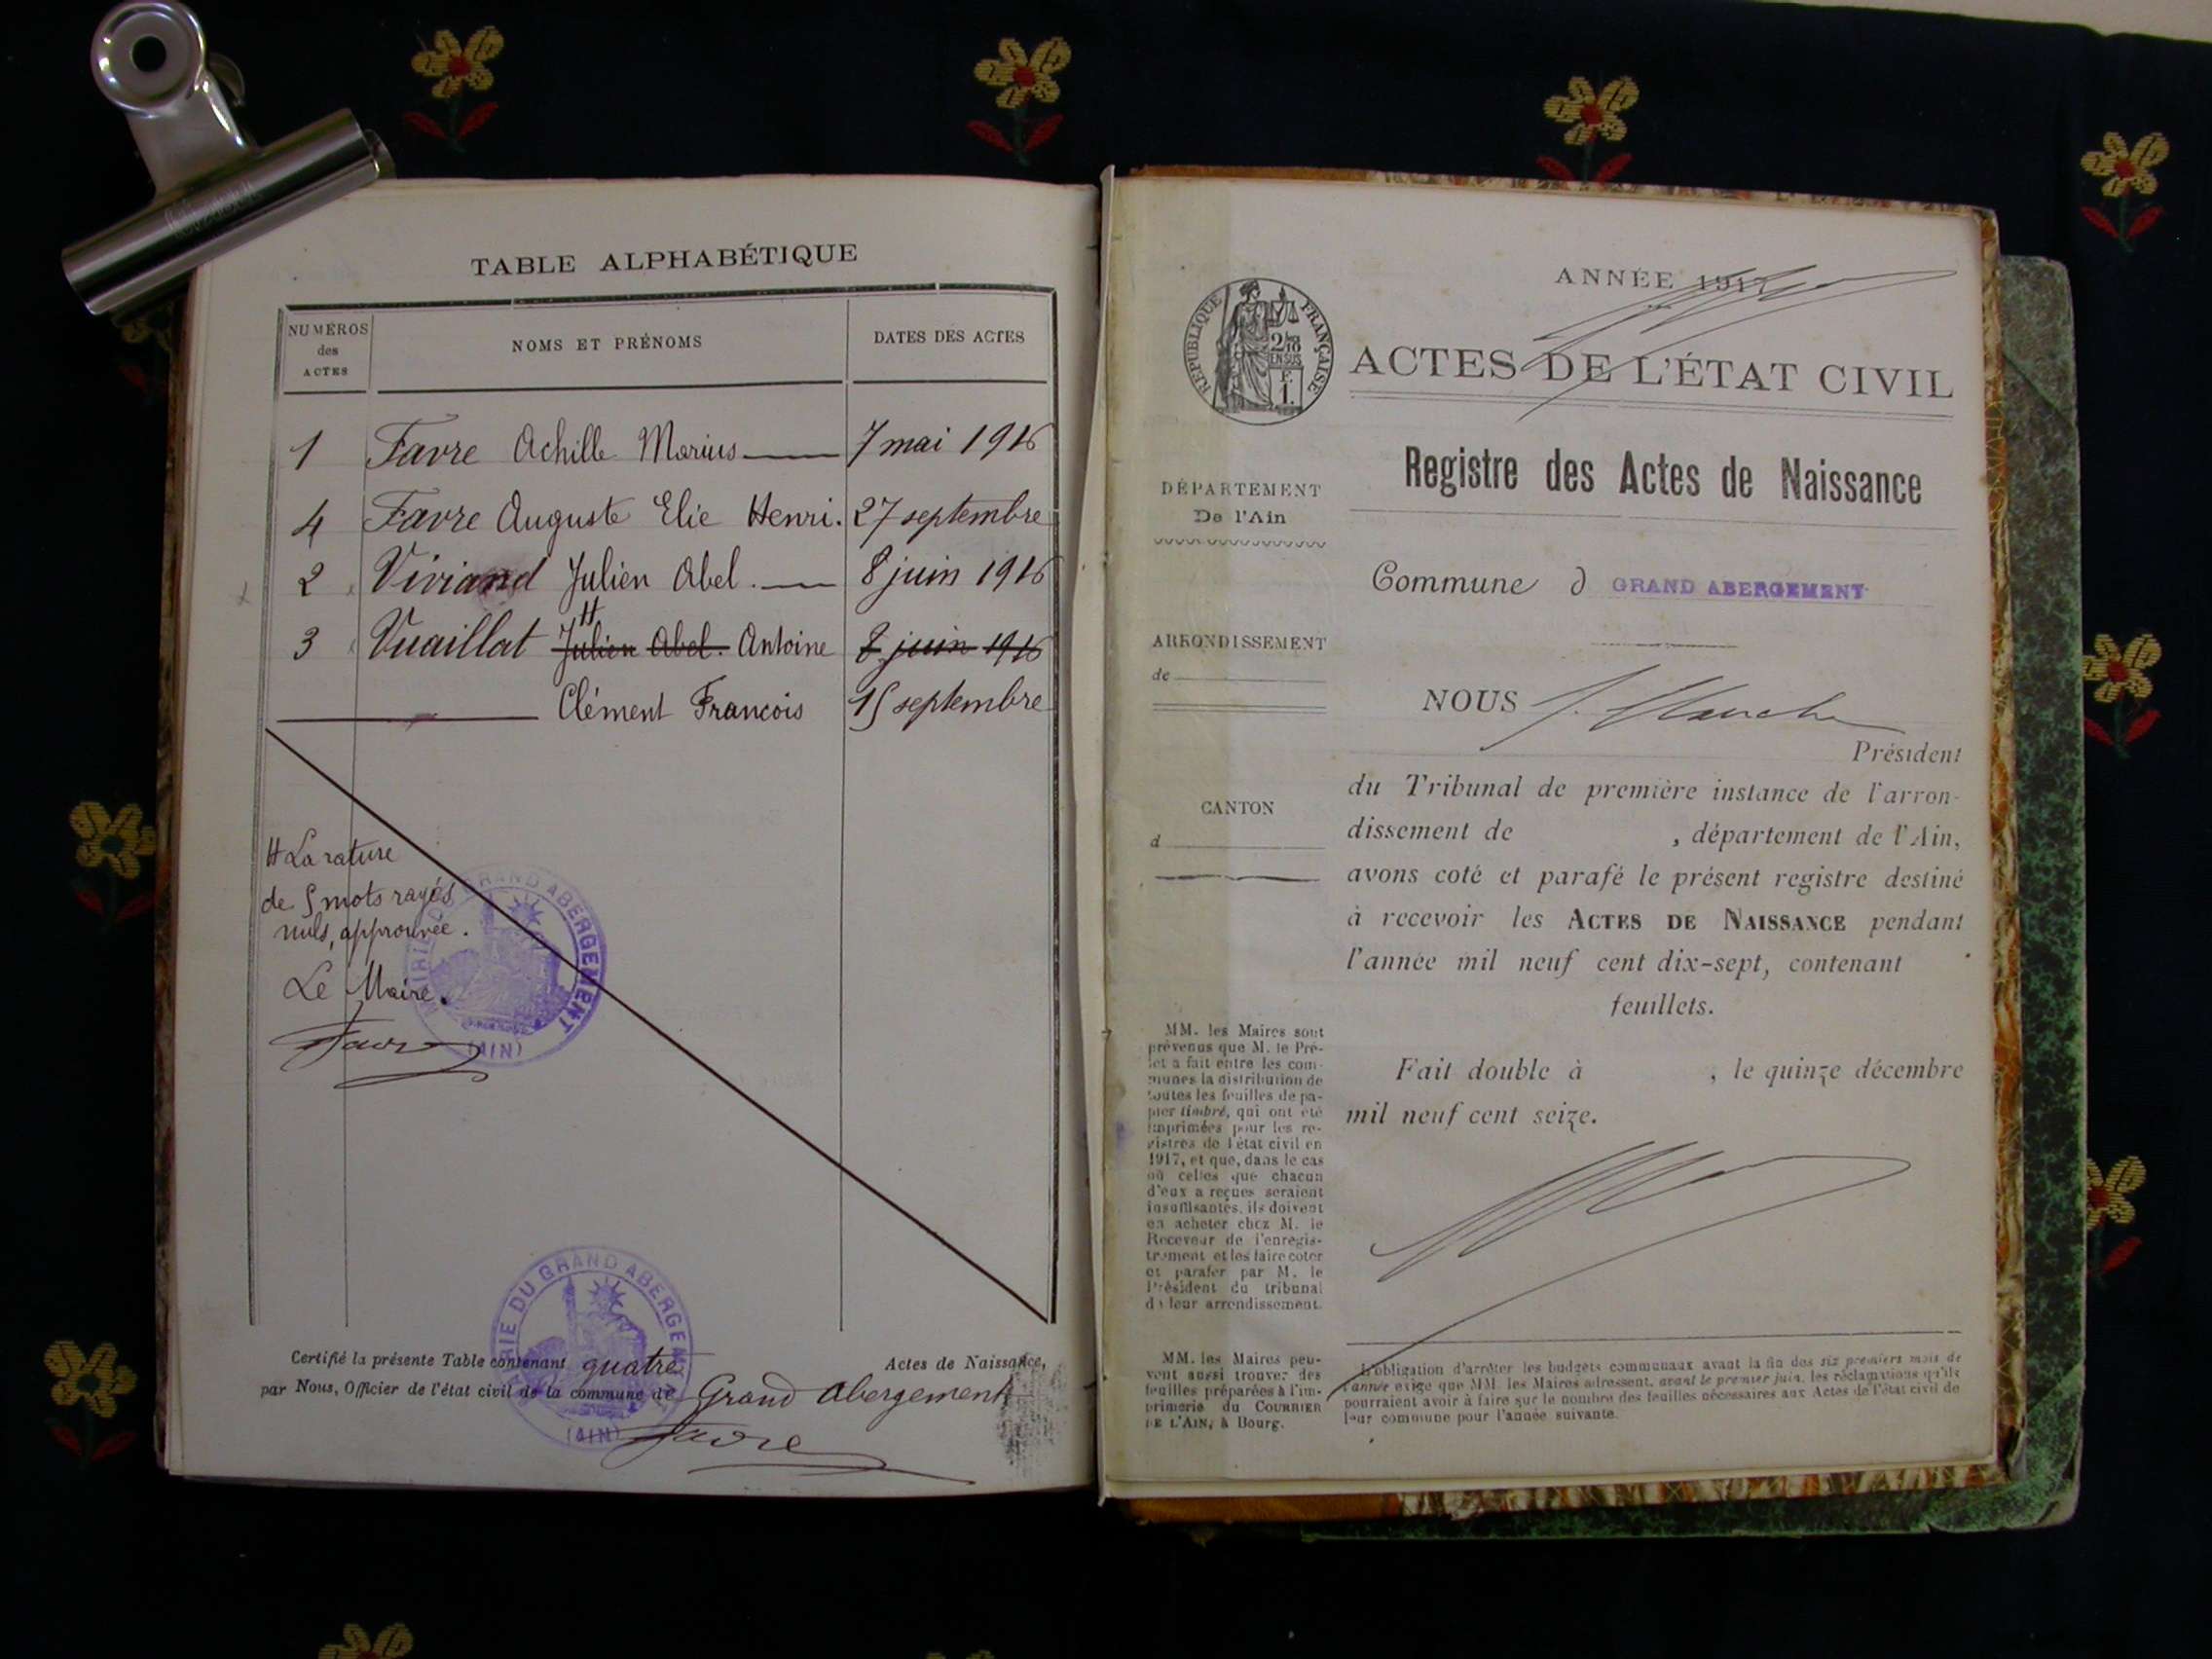 TABLE ALPHABÉTIQUE
NUMÉROS des ACTES
NOMS ET PRÉNOMS
DATES DES ACTES
1 Favre Achille Marius 7 mai 1916
4 Favre Auguste Elie Henri. 27 septembre
2 Viviand Julien Abel. 8 juin 1916
3 Vuaillat Julien Abel. Antoine 8 juin 1916
Clément Francois 15 septembre
H La rature
de 5 mots rayés
nuls, approuvée.
Le Maire.
Favre
MAIRIE DU GRAND ABERGEMENT
(AIN)
MAIRIE DU GRAND ABERGEMENT
(AIN)
Certifié la présente Table contenant quatre Actes de Naissance,
par Nous, Officier de l'état civil de la commune de Grand Abergement
Favre
RÉPUBLIQUE FRANÇAISE
2/10
EN SUS
F.
1.
DÉPARTEMENT
De l'Ain
ARRONDISSEMENT
de
CANTON
d
MM. les Maires sont
prévenus que M. le Pré-
fet a fait entre les com-
munes la distribution de
toutes les feuilles de pa-
pier timbré, qui ont été
imprimées pour les re-
gistres de l'état civil en
1917, et que, dans le cas
où celles que chacun
d'eux a reçues seraient
insuffisantes, ils doivent
en acheter chez M. le
Receveur de l'enregis-
trement et les faire coter
et parafer par M. le
Président du tribunal
de leur arrondissement.
MM. les Maires peu-
vent aussi trouver des
feuilles préparées à l'im-
primerie du COURRIER
DE L'AIN, à Bourg.
ANNÉE 1917
ACTES DE L'ÉTAT CIVIL
Registre des Actes de Naissance
Commune d GRAND ABERGEMENT
NOUS
Président
du Tribunal de première instance de l'arron-
dissement de , département de l'Ain,
avons coté et parafé le présent registre destiné
à recevoir les ACTES DE NAISSANCE pendant
l'année mil neuf cent dix-sept, contenant
feuillets.
Fait double à , le quinze décembre
mil neuf cent seize.
L'obligation d'arrêter les budgets communaux avant la fin des six premiers mois de
l'année exige que MM. les Maires adressent, avant le premier juin, les réclamations qu'ils
pourraient avoir à faire sur le nombre des feuilles nécessaires aux Actes de l'état civil de
leur commune pour l'année suivante.